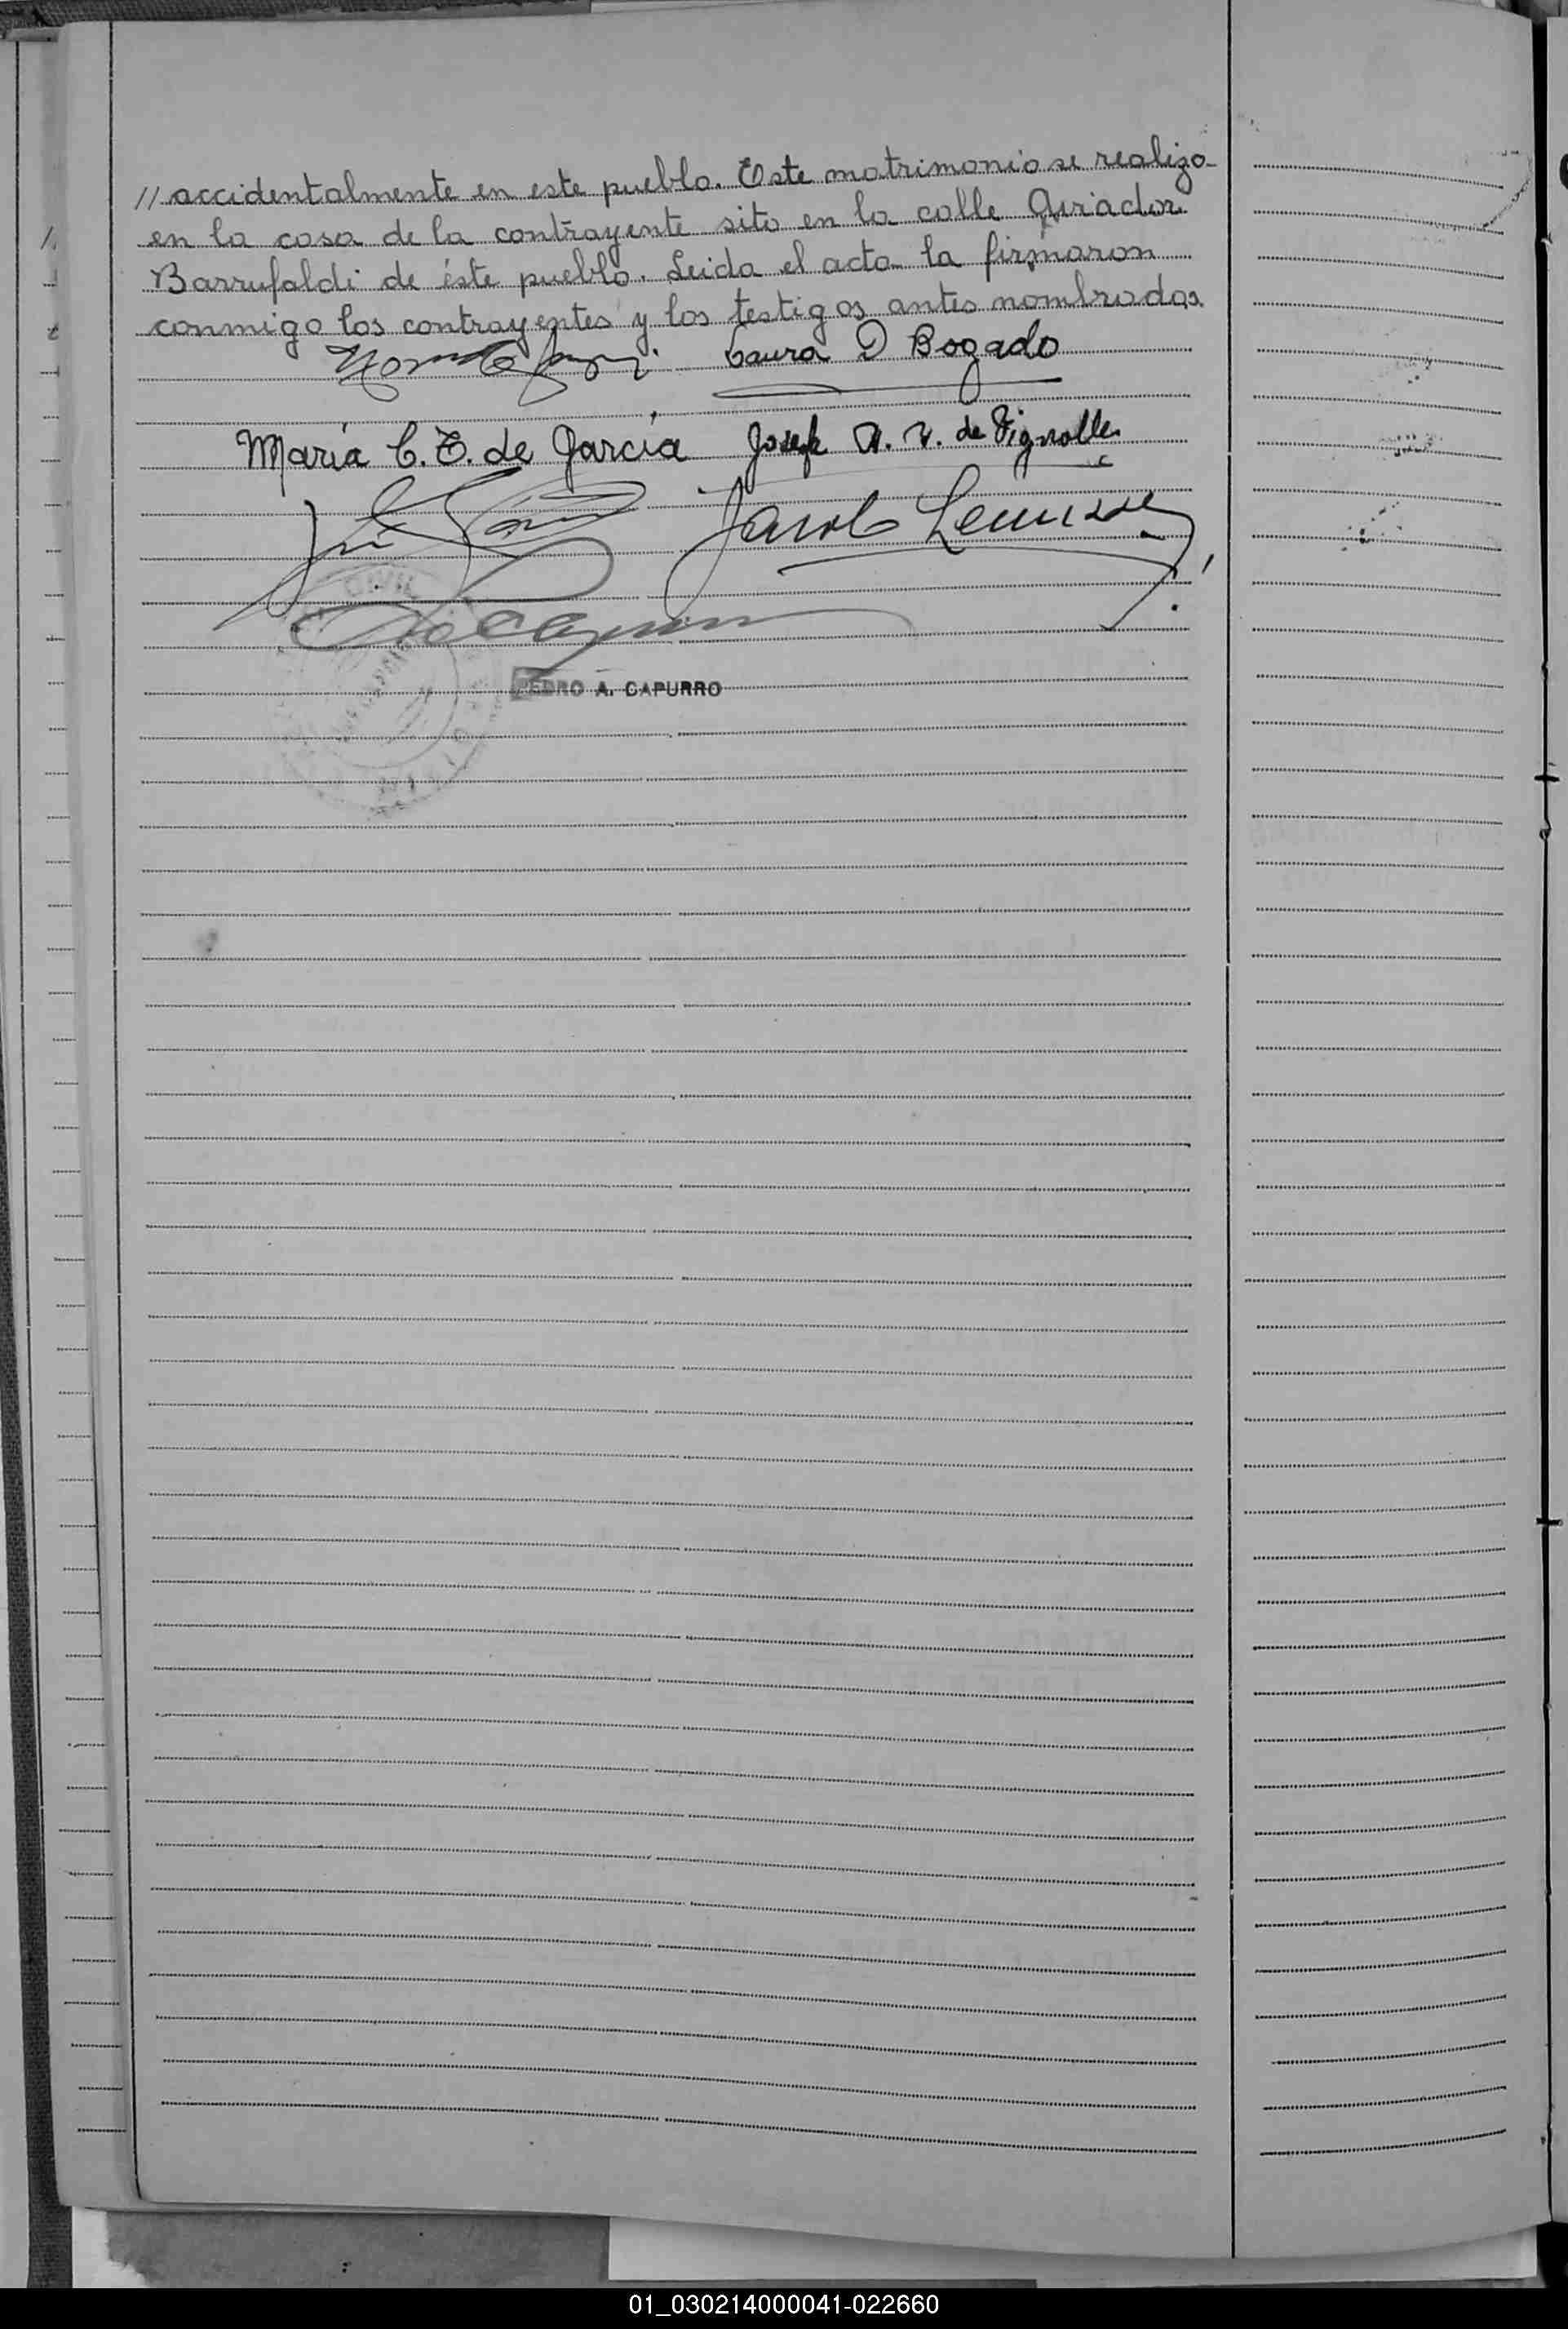 // accidentalmente en este pueblo. Este matrimonio se realizo
en la casa de la contrayente sito en la calle Aviador
Barrufaldi de éste pueblo. Leida el acta la firmaron
conmigo los contrayentes y los testigos antes nombrados.
Laura D Bogado
María C. E. de García Josefa A. V. de Vignolles
Jacob
CIVIL
PEDRO A. CAPURRO
01_030214000041-022660